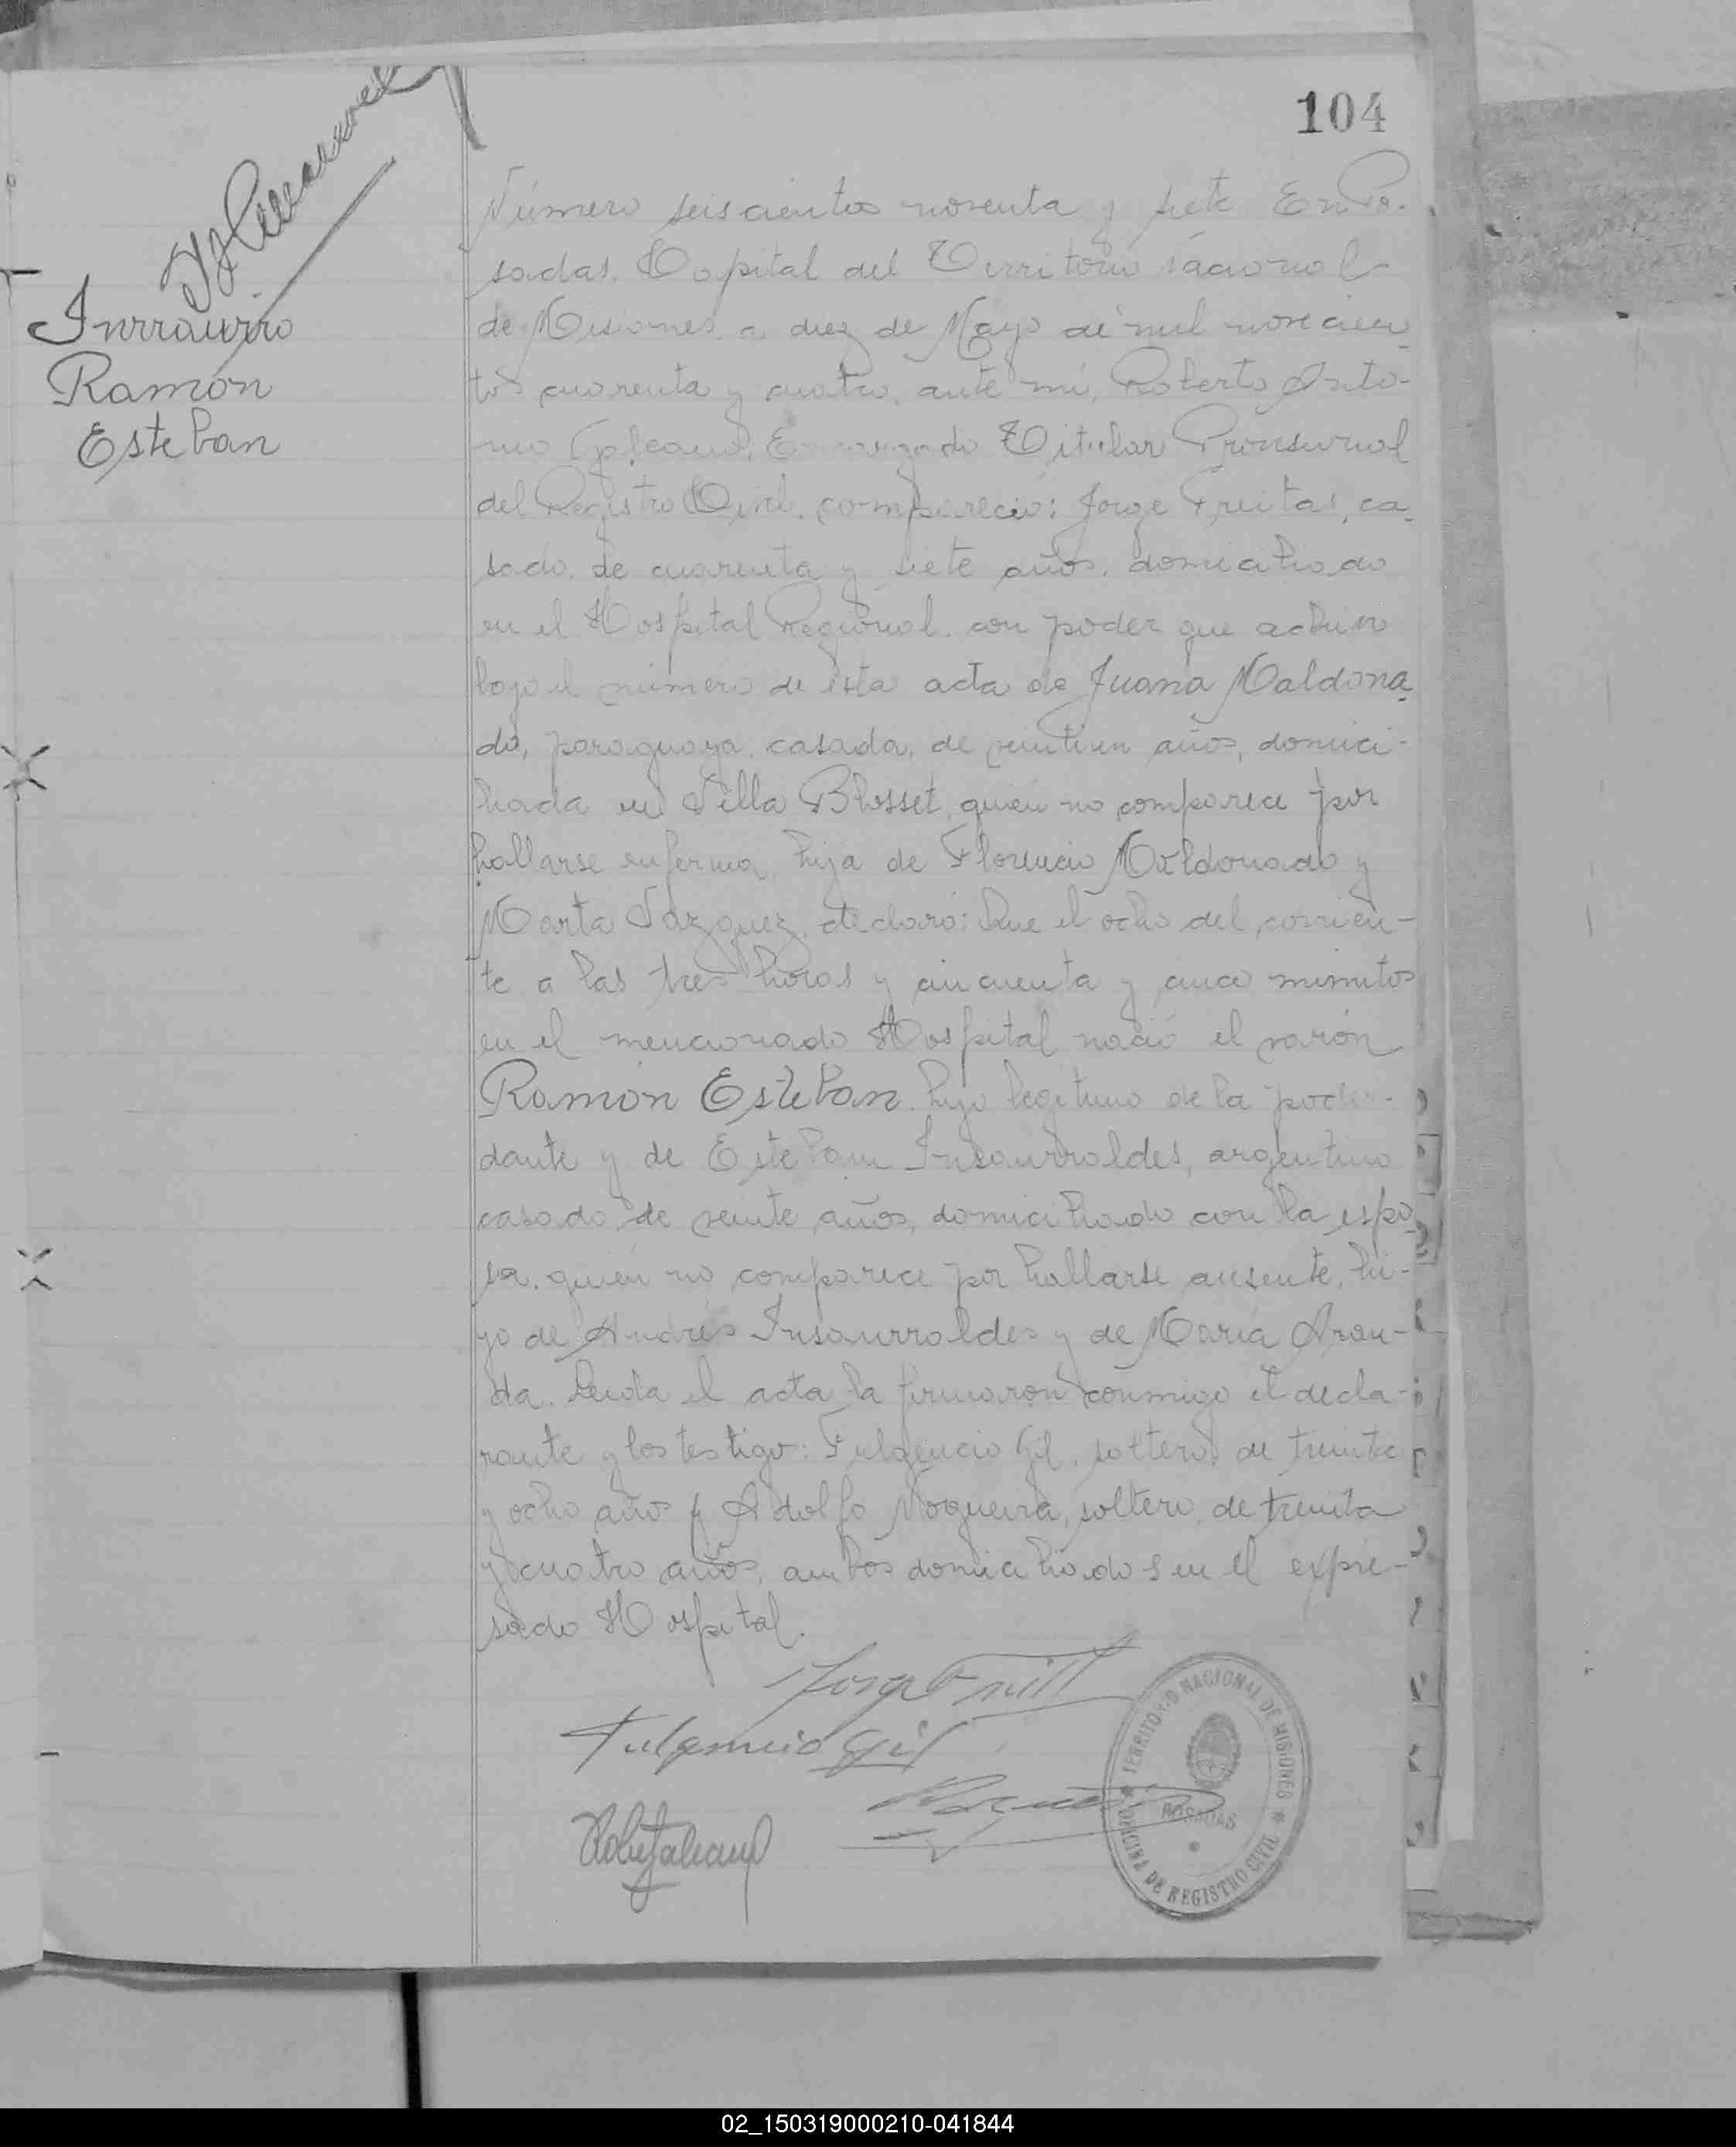 104
Inrraurro
Ramón
Esteban
Número seiscientos noventa y siete En Po-
sadas. Capital del Territorio nacional
de Misiones, a diez de Mayo de mil novecien-
tos cuarenta y cuatro, ante mí, Roberto Anto-
nio Galeano, Encargado Titular
del Registro Civil, compareció: Jorge Freitas, ca-
sado, de cuarenta y siete años, domiciliado
en el Hospital Regional, con poder que archivo
bajo el número de esta acta de Juana Maldona-
do, paraguaya, casada, de veintiun años, domici-
liada en Villa Blosset, quien no comparece por
hallarse enferma, hija de Florencio Maldonado y
Marta Vázquez, declaró: Que el ocho del corrien-
te a las tres horas y cincuenta y cinco minutos
en el mencionado Hospital nació el varón
Ramón Esteban hijo legítimo de la poder-
dante y de Esteban Insaurraldes, argentino
casado de veinte años, domiciliado con la espo-
sa, quien no comparece por hallarse ausente, hi-
jo de Andrés Insaurraldes y de María Aran-
da. Leida el acta la firmaron conmigo el decla-
rante y los testigo: Fulgencio Gil, soltero, de treinta
y ocho años y Adolfo Nogueira, soltero, de treinta
y cuatro años, ambos domiciliados en el expre-
sado Hospital.
Fulgencio Gil
TERRITORIO NACIONAL DE MISIONES
POSADAS
OFICINA DE REGISTRO CIVIL
02_150319000210-041844